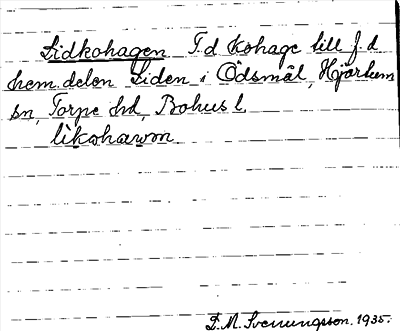 Lidkohagen F.d kohage till f.d
hem.delen Liden i Ödsmål, Hjärtum
sn, Torpe hd, Bohus l.
likohawen
F.M. Svenungsson. 1935.